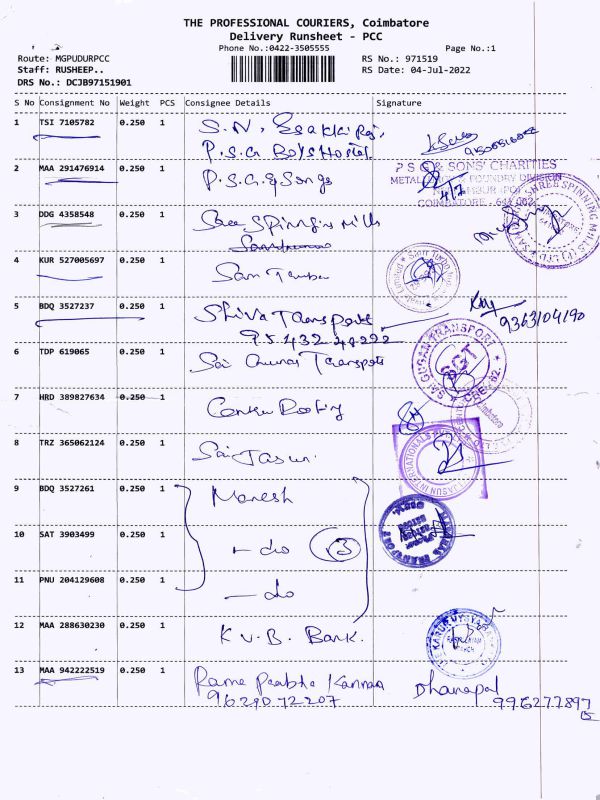 THE PROFESSIONAL COURIERS, Coimbatore
Delivery Runsheet - PCC
Phone No.:0422-3505555
Page No.:1
Route: MGPUDURPCC
RS No.: 971519
Staff: RUSHEEP..
RS Date: 04-Jul-2022
DRS No.: DCJB97151901
S No Consignment No Weight PCS Consignee Details Signature
1 TSI 7105782 0.250 1 S.N. Esakki Raj,
P.S.G Boys Hostel
2 MAA 291476914 0.250 1 P.S.G & Songs
P S G & SONS' CHARITIES
METAL FOUNDRY DIVISION
COIMBATORE - 641 062
3 DDG 4358548 0.250 1 Shree Spinning Mills
4 KUR 527005697 0.250 1 San
5 BDQ 3527237 0.250 1 Shiva Transports
9363104190
6 TDP 619065 0.250 1 Sai Transports
SAI GUGAN TRANSPORT
SGT
7 HRD 389827634 0.250 1 Roofing
8 TRZ 365062124 0.250 1 Sai Jasun.
JASUN INTERNATIONALS
9 BDQ 3527261 0.250 1 Manesh
10 SAT 3903499 0.250 1 - do (3)
11 PNU 204129608 0.250 1 - do
12 MAA 288630230 0.250 1 K V. B. Bank.
KARUR VYSYA
13 MAA 942222519 0.250 1 Rama Prabha Kannan Dhanapal
9629072207